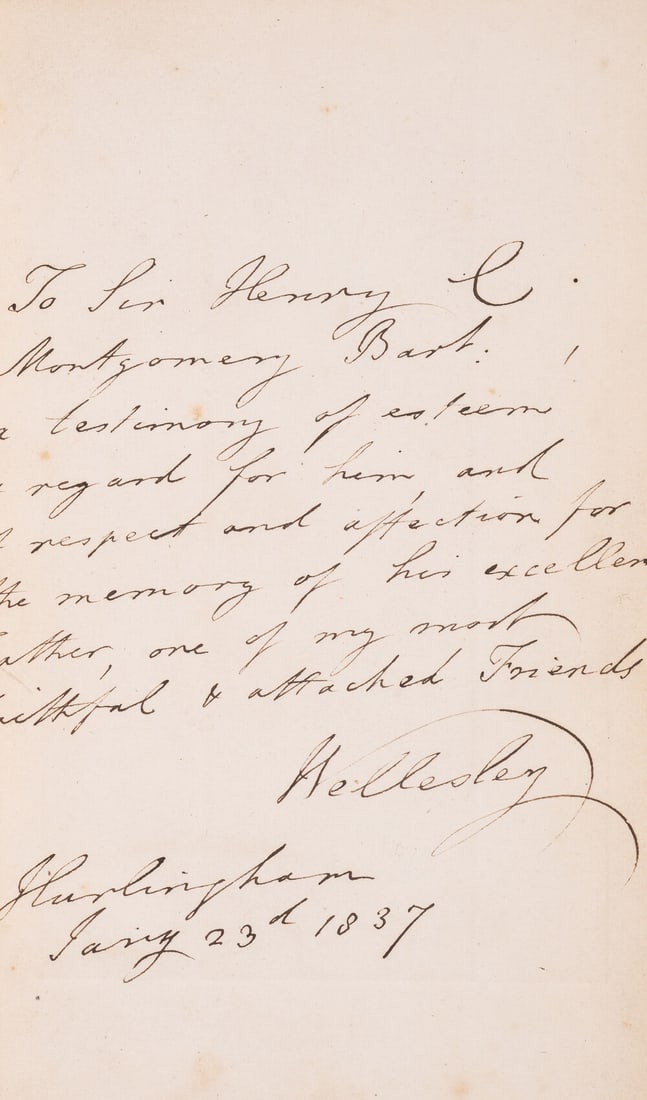 To Sir Henry C.
Montgomery Bart: ,
a testimony of esteem
& regard for him, and
respect and affection for
the memory of his excellen
ather, one of my most
aithful & attached Friends
Wellesley
Hurlingham
Jany 23d 1837